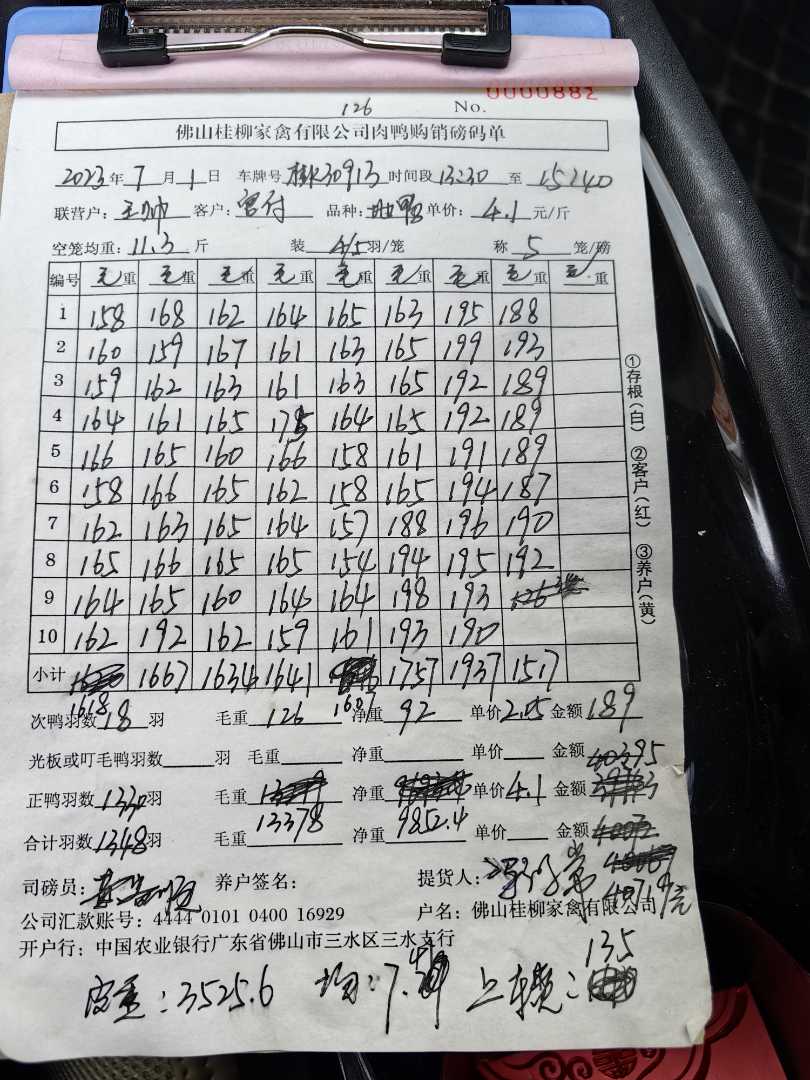 126 No. 0000882
佛山桂柳家禽有限公司肉鸭购销磅码单
2023年7月1日 车牌号 30913 时间段 13:30 至 15:40
联营户: 王帅 客户: 宫付 品种: 单价: 4.1 元/斤
空笼均重: 11.3 斤 装 4/5 羽/笼 称 5 笼/磅
编号 毛重 毛重 毛重 毛重 毛重 毛重 毛重 毛重 毛重
1 158 168 162 164 165 163 195 188
2 160 159 167 161 163 165 199 193
3 159 162 163 161 163 165 192 189
4 164 161 165 175 164 165 192 189
5 166 165 160 166 158 161 191 189
6 158 166 165 162 158 165 194 187
7 162 163 165 164 157 188 196 190
8 165 166 165 165 154 194 195 192
9 164 165 160 164 164 198 193
10 162 192 162 159 161 193 190
小计 1667 1634 1641 1757 1937 1517
1618 1607
次鸭羽数 18 羽 毛重 126 净重 92 单价 2.05 金额 189
光板或叮毛鸭羽数 羽 毛重 净重 单价 金额 40395
正鸭羽数 1330 羽 毛重 净重 单价 4.1 金额
合计羽数 1348 羽 毛重 13378 净重 9852.4 单价 金额
司磅员: 养户签名: 提货人: 40719元
公司汇款账号: 4444 0101 0400 16929 户名: 佛山桂柳家禽有限公司
开户行: 中国农业银行广东省佛山市三水区三水支行
皮重: 3525.6 均: 7. 上车凳: 135
①存根(白) ②客户(红) ③养户(黄)